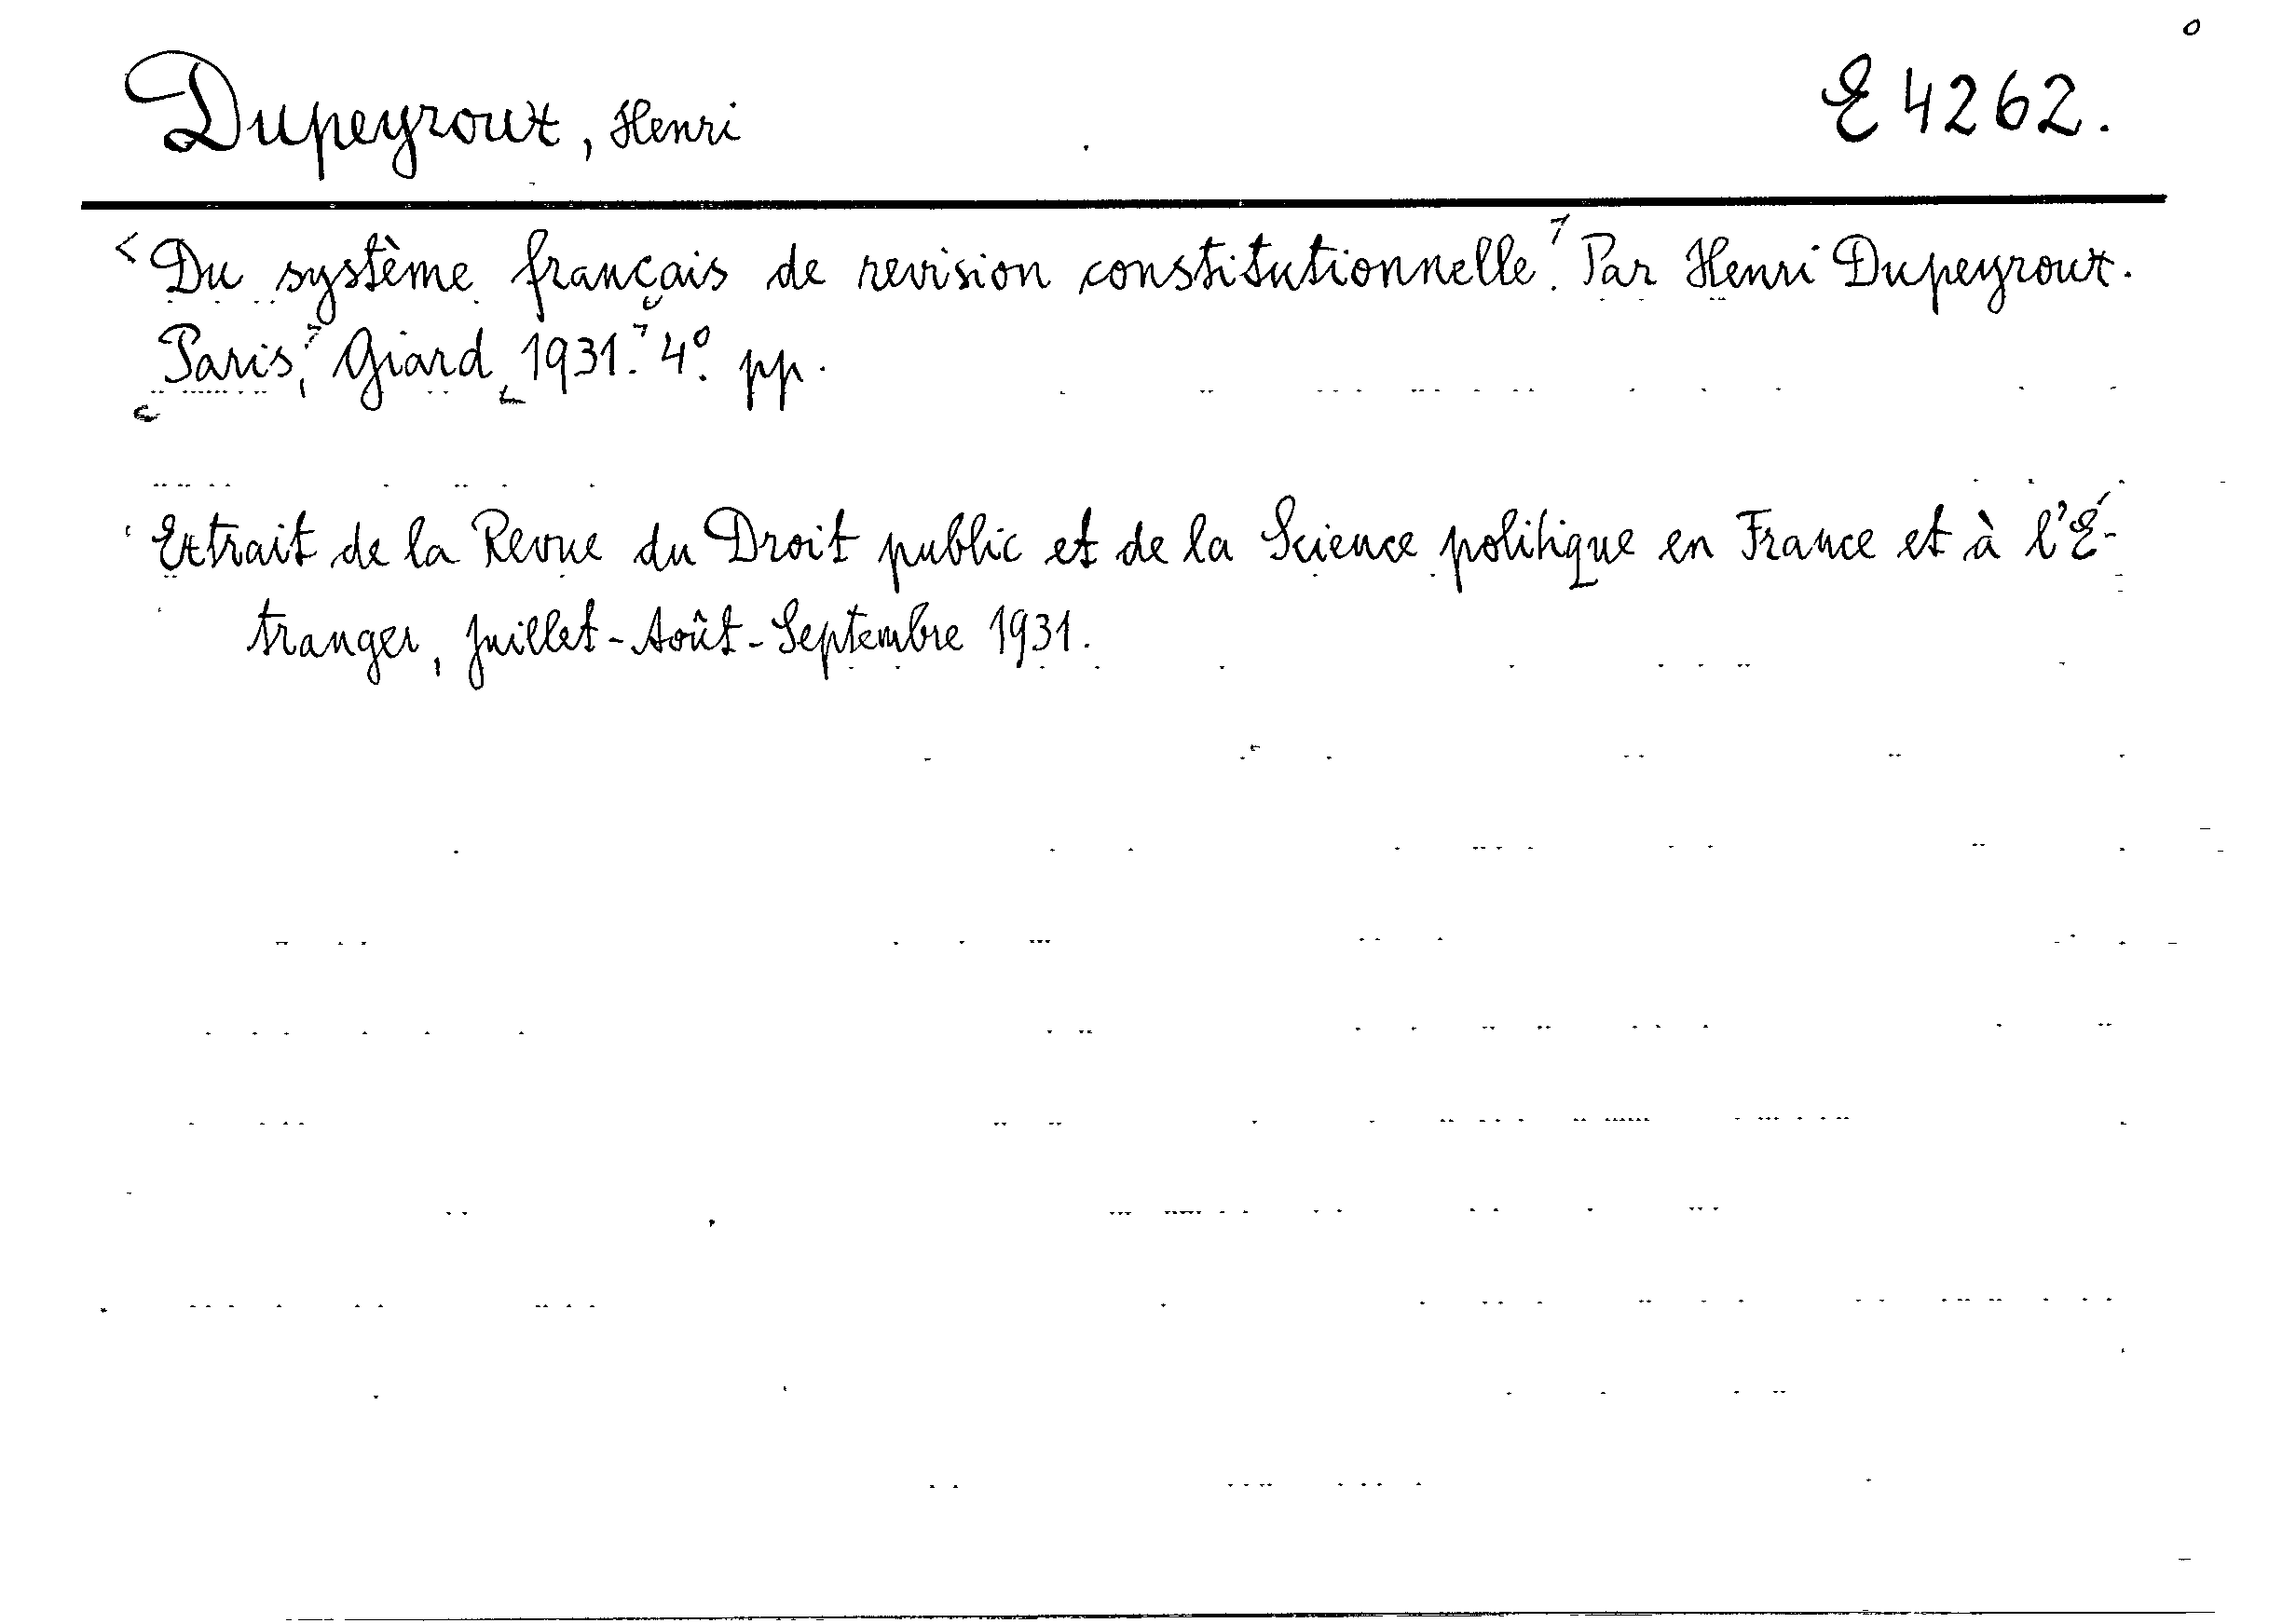 Dupeyroux, Henri E 4262.
Du système français de revision constitutionnelle. Par Henri Dupeyroux.
Paris, Giard, 1931. 4°. pp.
Extrait de la Revue du Droit public et de la Science politique en France et à l'É-
tranger, Juillet-Août-Septembre 1931.